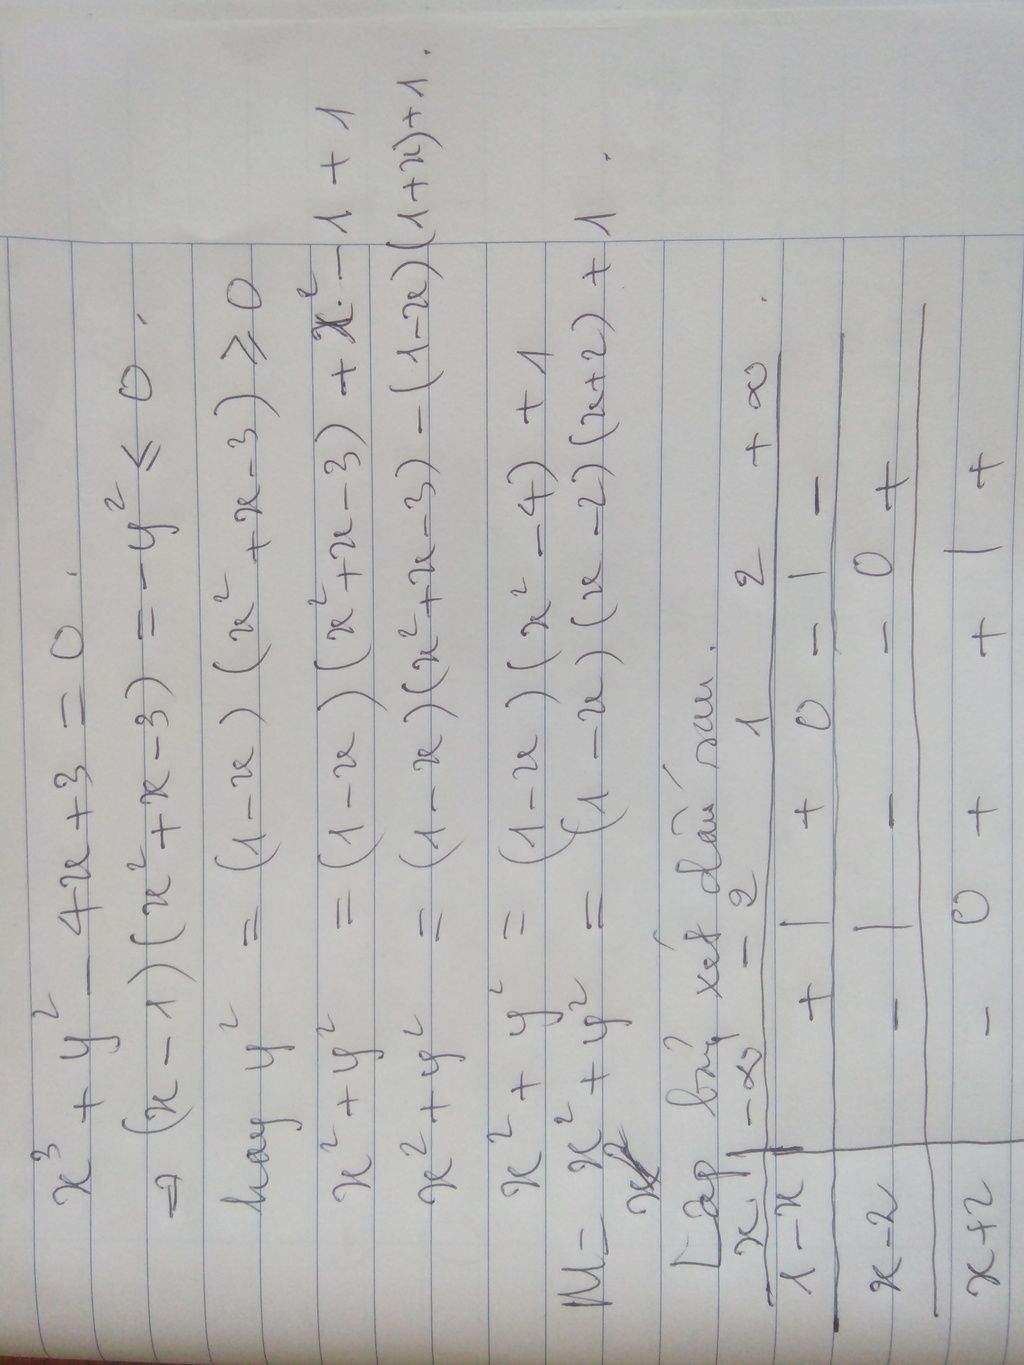 x³ + y² - 4x + 3 = 0.
⇒ (x - 1)(x² + x - 3) = - y² ≤ 0.
hay y² = (1 - x)(x² + x - 3) ≥ 0
x² + y² = (1 - x)(x² + x - 3) + x² - 1 + 1
x² + y² = (1 - x)(x² + x - 3) - (1 - x)(1 + x) + 1.
x² + y² = (1 - x)(x² - 4) + 1
M = x² + y² = (1 - x)(x - 2)(x + 2) + 1.
Lập bảng xét dấu sau.
x | -∞ -2 1 2 +∞
1 - x | + | + 0 - | -
x - 2 | - | - - 0 +
x + 2 | - 0 + + | +